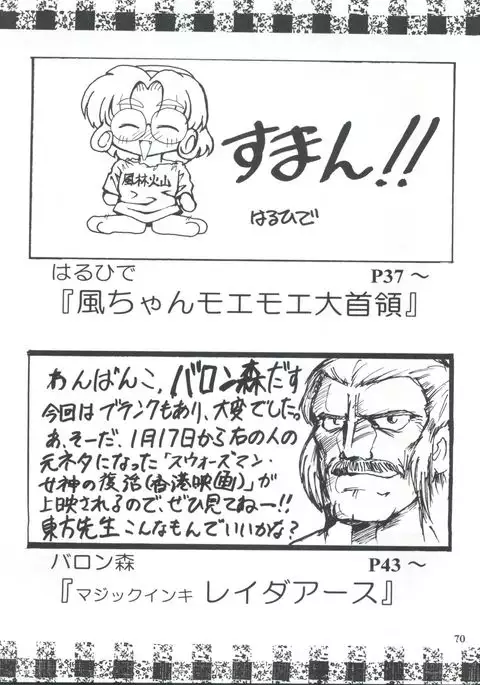 風林火山
すまん!!
はるひで
はるひで P37 ～
『風ちゃんモエモエ大首領』
わんばんこ、バロン森だす
今回はブランクもあり、大変でした。
あ、そーだ、1月17日から右の人の
元ネタになった「スウォーズマン・
女神の復活(香港映画)」が
上映されるので、ぜひ見てねー!!
東方先生こんなもんでいいかな?
バロン森 P43 ～
『マジックインキ レイダアース』
70